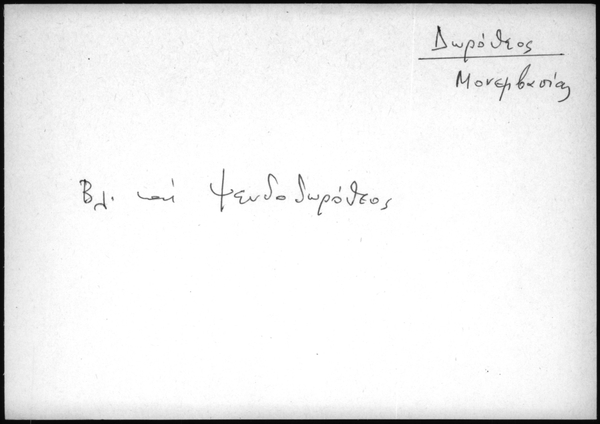 Δωρόθεος
Μονεμβασίας
Βλ. καί Ψευδοδωρόθεος